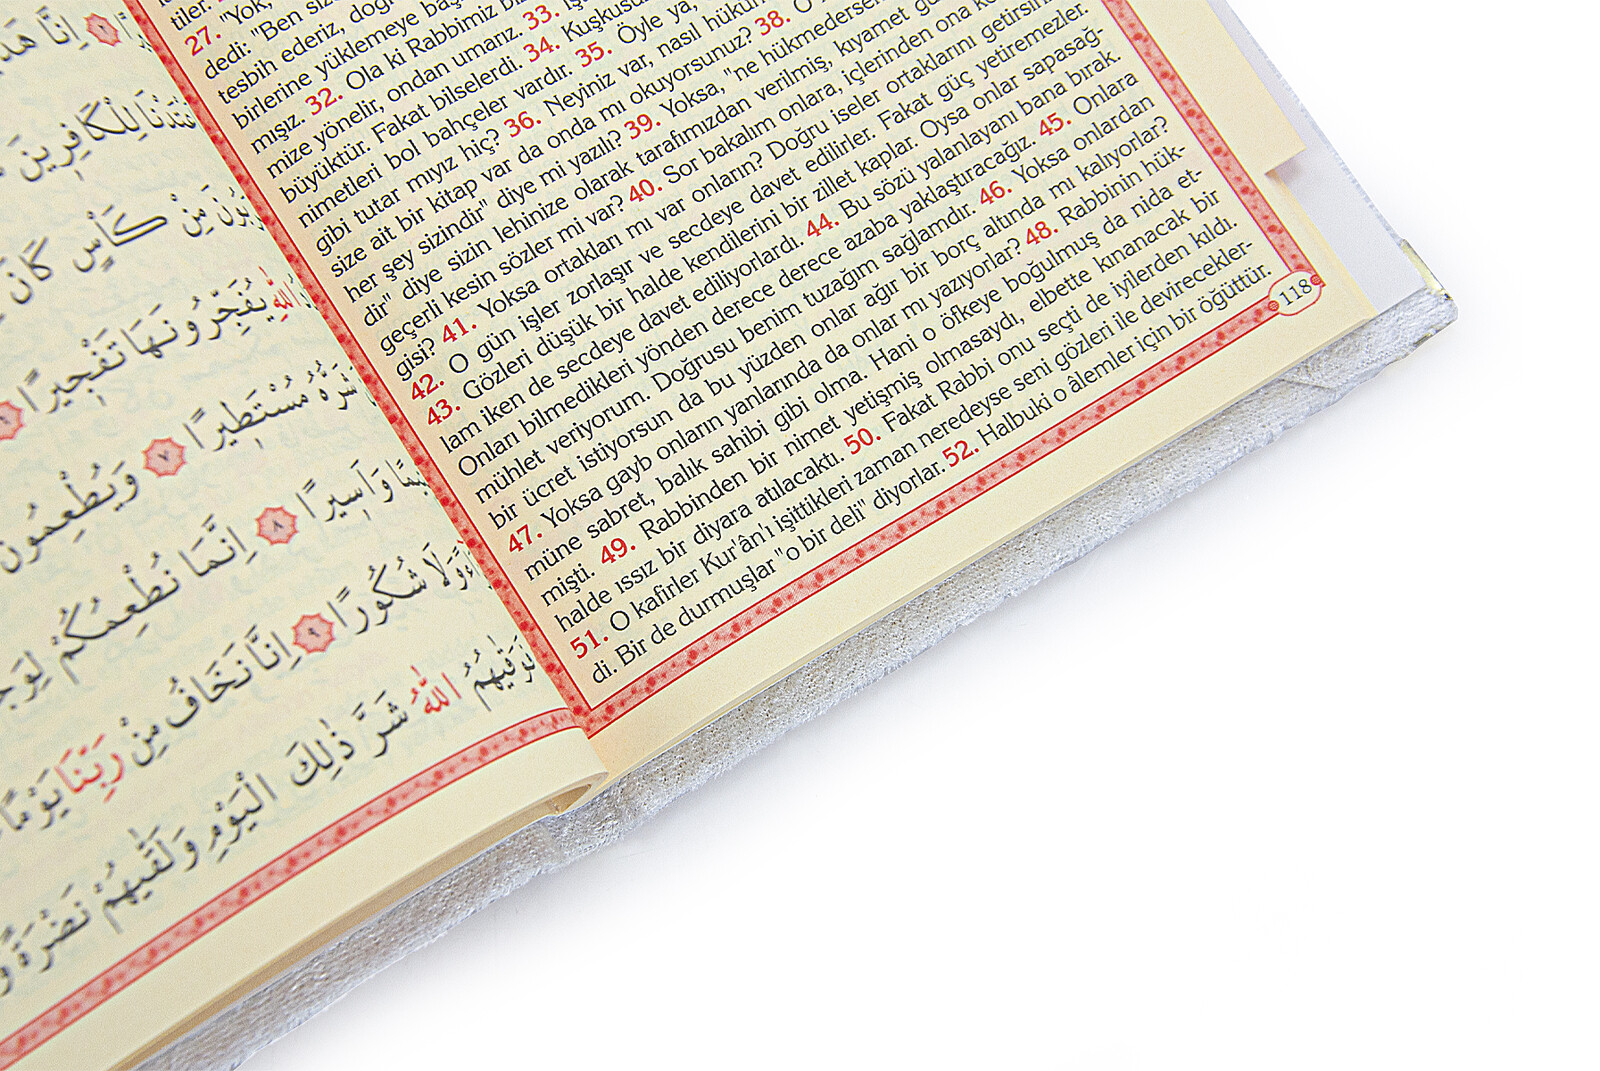 اِنَّا هَدَ
اَعْتَدْنَا لِلْكَافِر۪ينَ
مِنْ كَأْسٍ كَانَ
اللّٰهِ يُفَجِّرُونَهَا تَفْج۪يرًا ٦
شَرُّهُ مُسْتَط۪يرًا ٧ وَيُطْعِمُونَ
وَاَس۪يرًا ٨ اِنَّمَا نُطْعِمُكُمْ لِوَجْ
وَلَا شُكُورًا ٩ اِنَّا نَخَافُ مِنْ رَبِّنَا يَوْمًا
فَوَقٰيهُمُ اللّٰهُ شَرَّ ذٰلِكَ الْيَوْمِ وَلَقّٰيهُمْ نَضْرَةً وَ
tiler.
27. "Yok,
dedi: "Ben size
tesbih ederiz, doğ
birlerine yüklemeye baş
mışız. 32. Ola ki Rabbimiz bi
mize yönelir, ondan umarız. 33. İş
büyüktür. Fakat bilselerdi. 34. Kuşkusu
nimetleri bol bahçeler vardır. 35. Öyle ya,
gibi tutar mıyız hiç? 36. Neyiniz var, nasıl hüküm
size ait bir kitap var da onda mı okuyorsunuz? 38. O
her şey sizindir" diye mi yazılı? 39. Yoksa, "ne hükmederseni
dir" diye sizin lehinize olarak tarafımızdan verilmiş, kıyamet gü
geçerli kesin sözler mi var? 40. Sor bakalım onlara, içlerinden ona ke
gisi? 41. Yoksa ortakları mı var onların? Doğru iseler ortaklarını getirsinl
42. O gün işler zorlaşır ve secdeye davet edilirler. Fakat güç yetiremezler.
43. Gözleri düşük bir halde kendilerini bir zillet kaplar. Oysa onlar sapasağ-
lam iken de secdeye davet ediliyorlardı. 44. Bu sözü yalanlayanı bana bırak.
Onları bilmedikleri yönden derece derece azaba yaklaştıracağız. 45. Onlara
mühlet veriyorum. Doğrusu benim tuzağım sağlamdır. 46. Yoksa onlardan
bir ücret istiyorsun da bu yüzden onlar ağır bir borç altında mı kalıyorlar?
47. Yoksa gayb onların yanlarında da onlar mı yazıyorlar? 48. Rabbinin hük-
müne sabret, balık sahibi gibi olma. Hani o öfkeye boğulmuş da nida et-
mişti. 49. Rabbinden bir nimet yetişmiş olmasaydı, elbette kınanacak bir
halde ıssız bir diyara atılacaktı. 50. Fakat Rabbi onu seçti de iyilerden kıldı.
51. O kafirler Kur'ân'ı işittikleri zaman neredeyse seni gözleri ile devirecekler-
di. Bir de durmuşlar "o bir deli" diyorlar. 52. Halbuki o âlemler için bir öğüttür.
118